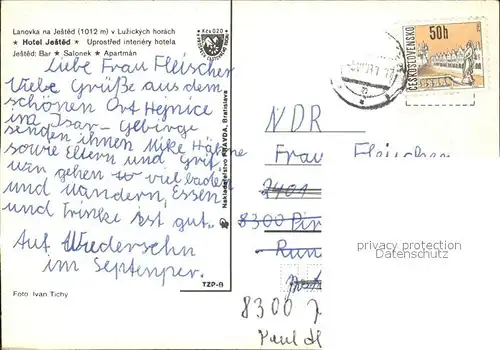 Lanovka na Ještěd (1012 m) v Lužických horách
★ Hotel Ještěd ★ Uprostřed interiéry hotela
Ještěd: Bar ★ Salonek ★ Apartmán
Kčs 0,20
Liebe Frau Fleischer
Viebe Grüße aus dem
schönen Ort Hejnice
im Isar-Gebirge
senden ihnen Mike
sowie Eltern und
wir gehen viel baden
und wandern, Essen
und Trinke ist gut.
Auf Wiedersehn
im Septenper.
Foto Ivan Tichy
TZP-B
Nakladatelstvo PRAVDA, Bratislava
ČESKOSLOVENSKO
50h
NDR
Frau Fleischer
2401
8300 Pir
Run
8300
Paul
privacy protection
Datenschutz